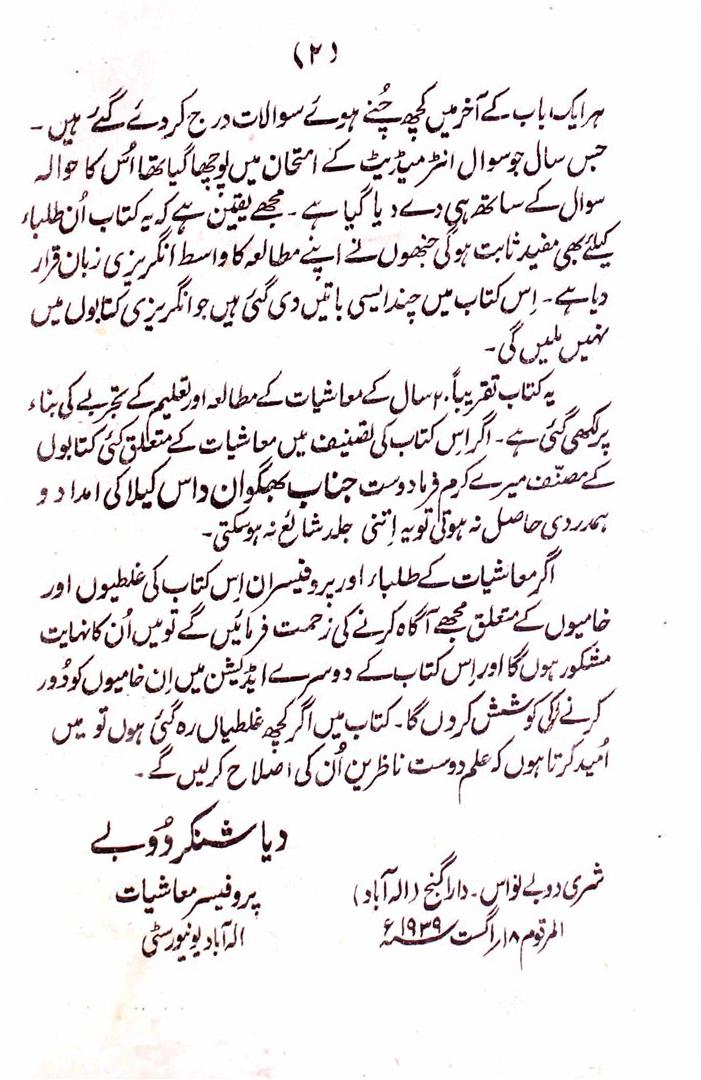 (۲)
ہر ایک باب کے آخر میں کچھ چُنے ہوئے سوالات درج کر دئے گئے ہیں ۔
جس سال جو سوال انٹرمیڈیٹ کے امتحان میں پوچھا گیا تھا اُس کا حوالہ
سوال کے ساتھ ہی دے دیا گیا ہے ۔ مجھے یقین ہے کہ یہ کتاب اُن طلباء
کیلئے بھی مفید ثابت ہوگی جنھوں نے اپنے مطالعہ کا واسط انگریزی زبان قرار
دیا ہے ۔ اِس کتاب میں چند ایسی باتیں دی گئی ہیں جو انگریزی کتابوں میں
نہیں ملیں گی ۔
یہ کتاب تقریباً ۲۰ سال کے معاشیات کے مطالعہ اور تعلیم کے تجربے کی بناء
پر لکھی گئی ہے ۔ اگر اِس کتاب کی تصنیف میں معاشیات کے متعلق کئی کتابوں
کے مصنّف میرے کرم فرما دوست جناب بھگوان داس کیلا کی امداد و
ہمدردی حاصل نہ ہوتی تو یہ اِتنی جلد شائع نہ ہو سکتی ۔
اگر معاشیات کے طلباء اور پروفیسران اِس کتاب کی غلطیوں اور
خامیوں کے متعلق مجھے آگاہ کرنے کی زحمت فرمائیں گے تو میں اُن کا نہایت
مشکور ہوں گا اور اِس کتاب کے دوسرے ایڈیشن میں اِن خامیوں کو دُور
کرنے کی کوشش کردں گا ۔ کتاب میں اگر کچھ غلطیاں رہ گئی ہوں تو میں
اُمید کرتا ہوں کہ علم دوست ناظرین اُن کی اصلاح کرلیں گے ۔
دیا شنکر دُوبے
شری دوبے نواس ۔ دارا گنج (الہ آباد)
پروفیسر معاشیات
المرقوم ۱۸ اگست سنہ ۱۹۳۹ء
الہ آباد یونیورسٹی